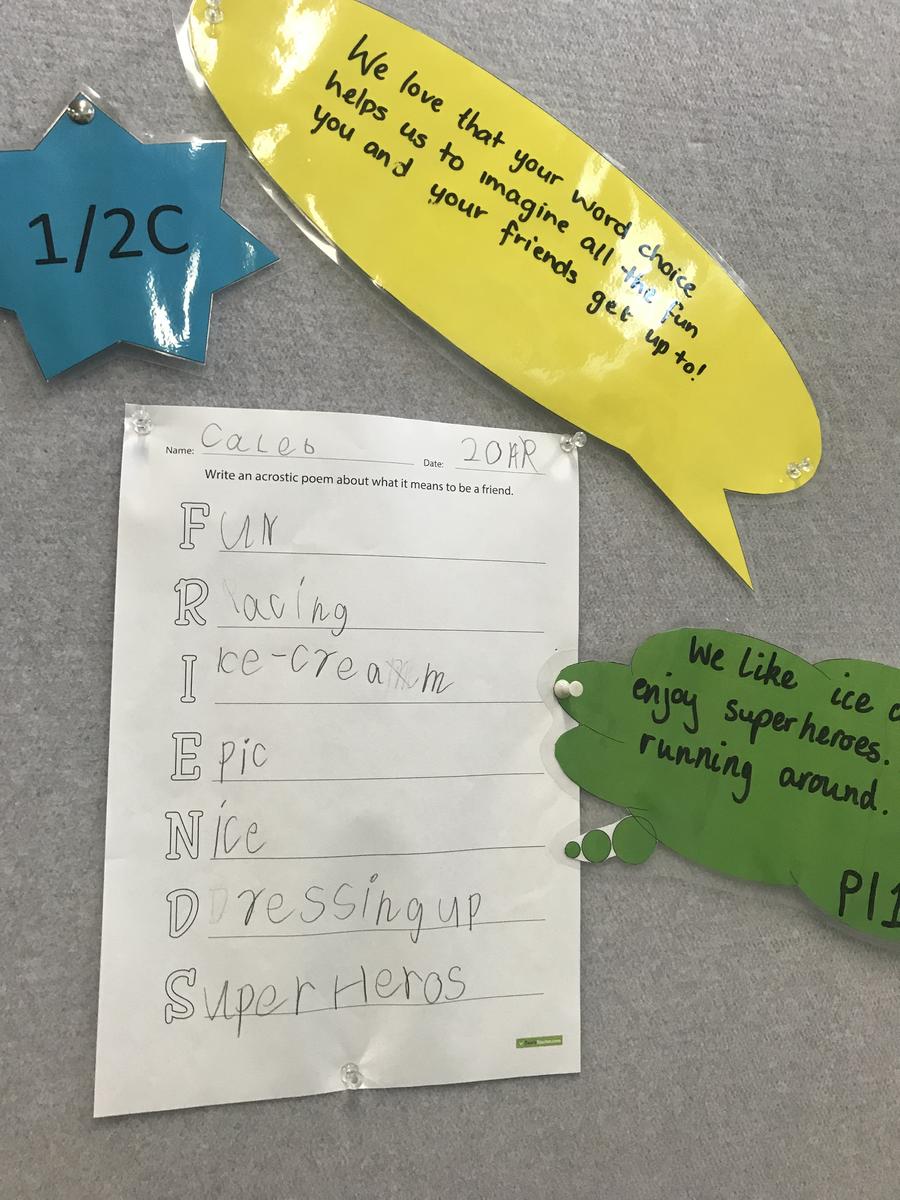 We love that your word choice
helps us to imagine all the fun
you and your friends get up to!
1/2C
Name: Caleb Date: 20AR
Write an acrostic poem about what it means to be a friend.
Fun
Racing
Ice-cream
Epic
Nice
Dressing up
SuperHeros
We like ice
enjoy superheroes.
running around.
P/1